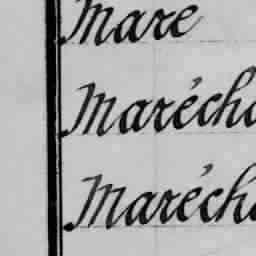 Mare
Maréch
Maréch